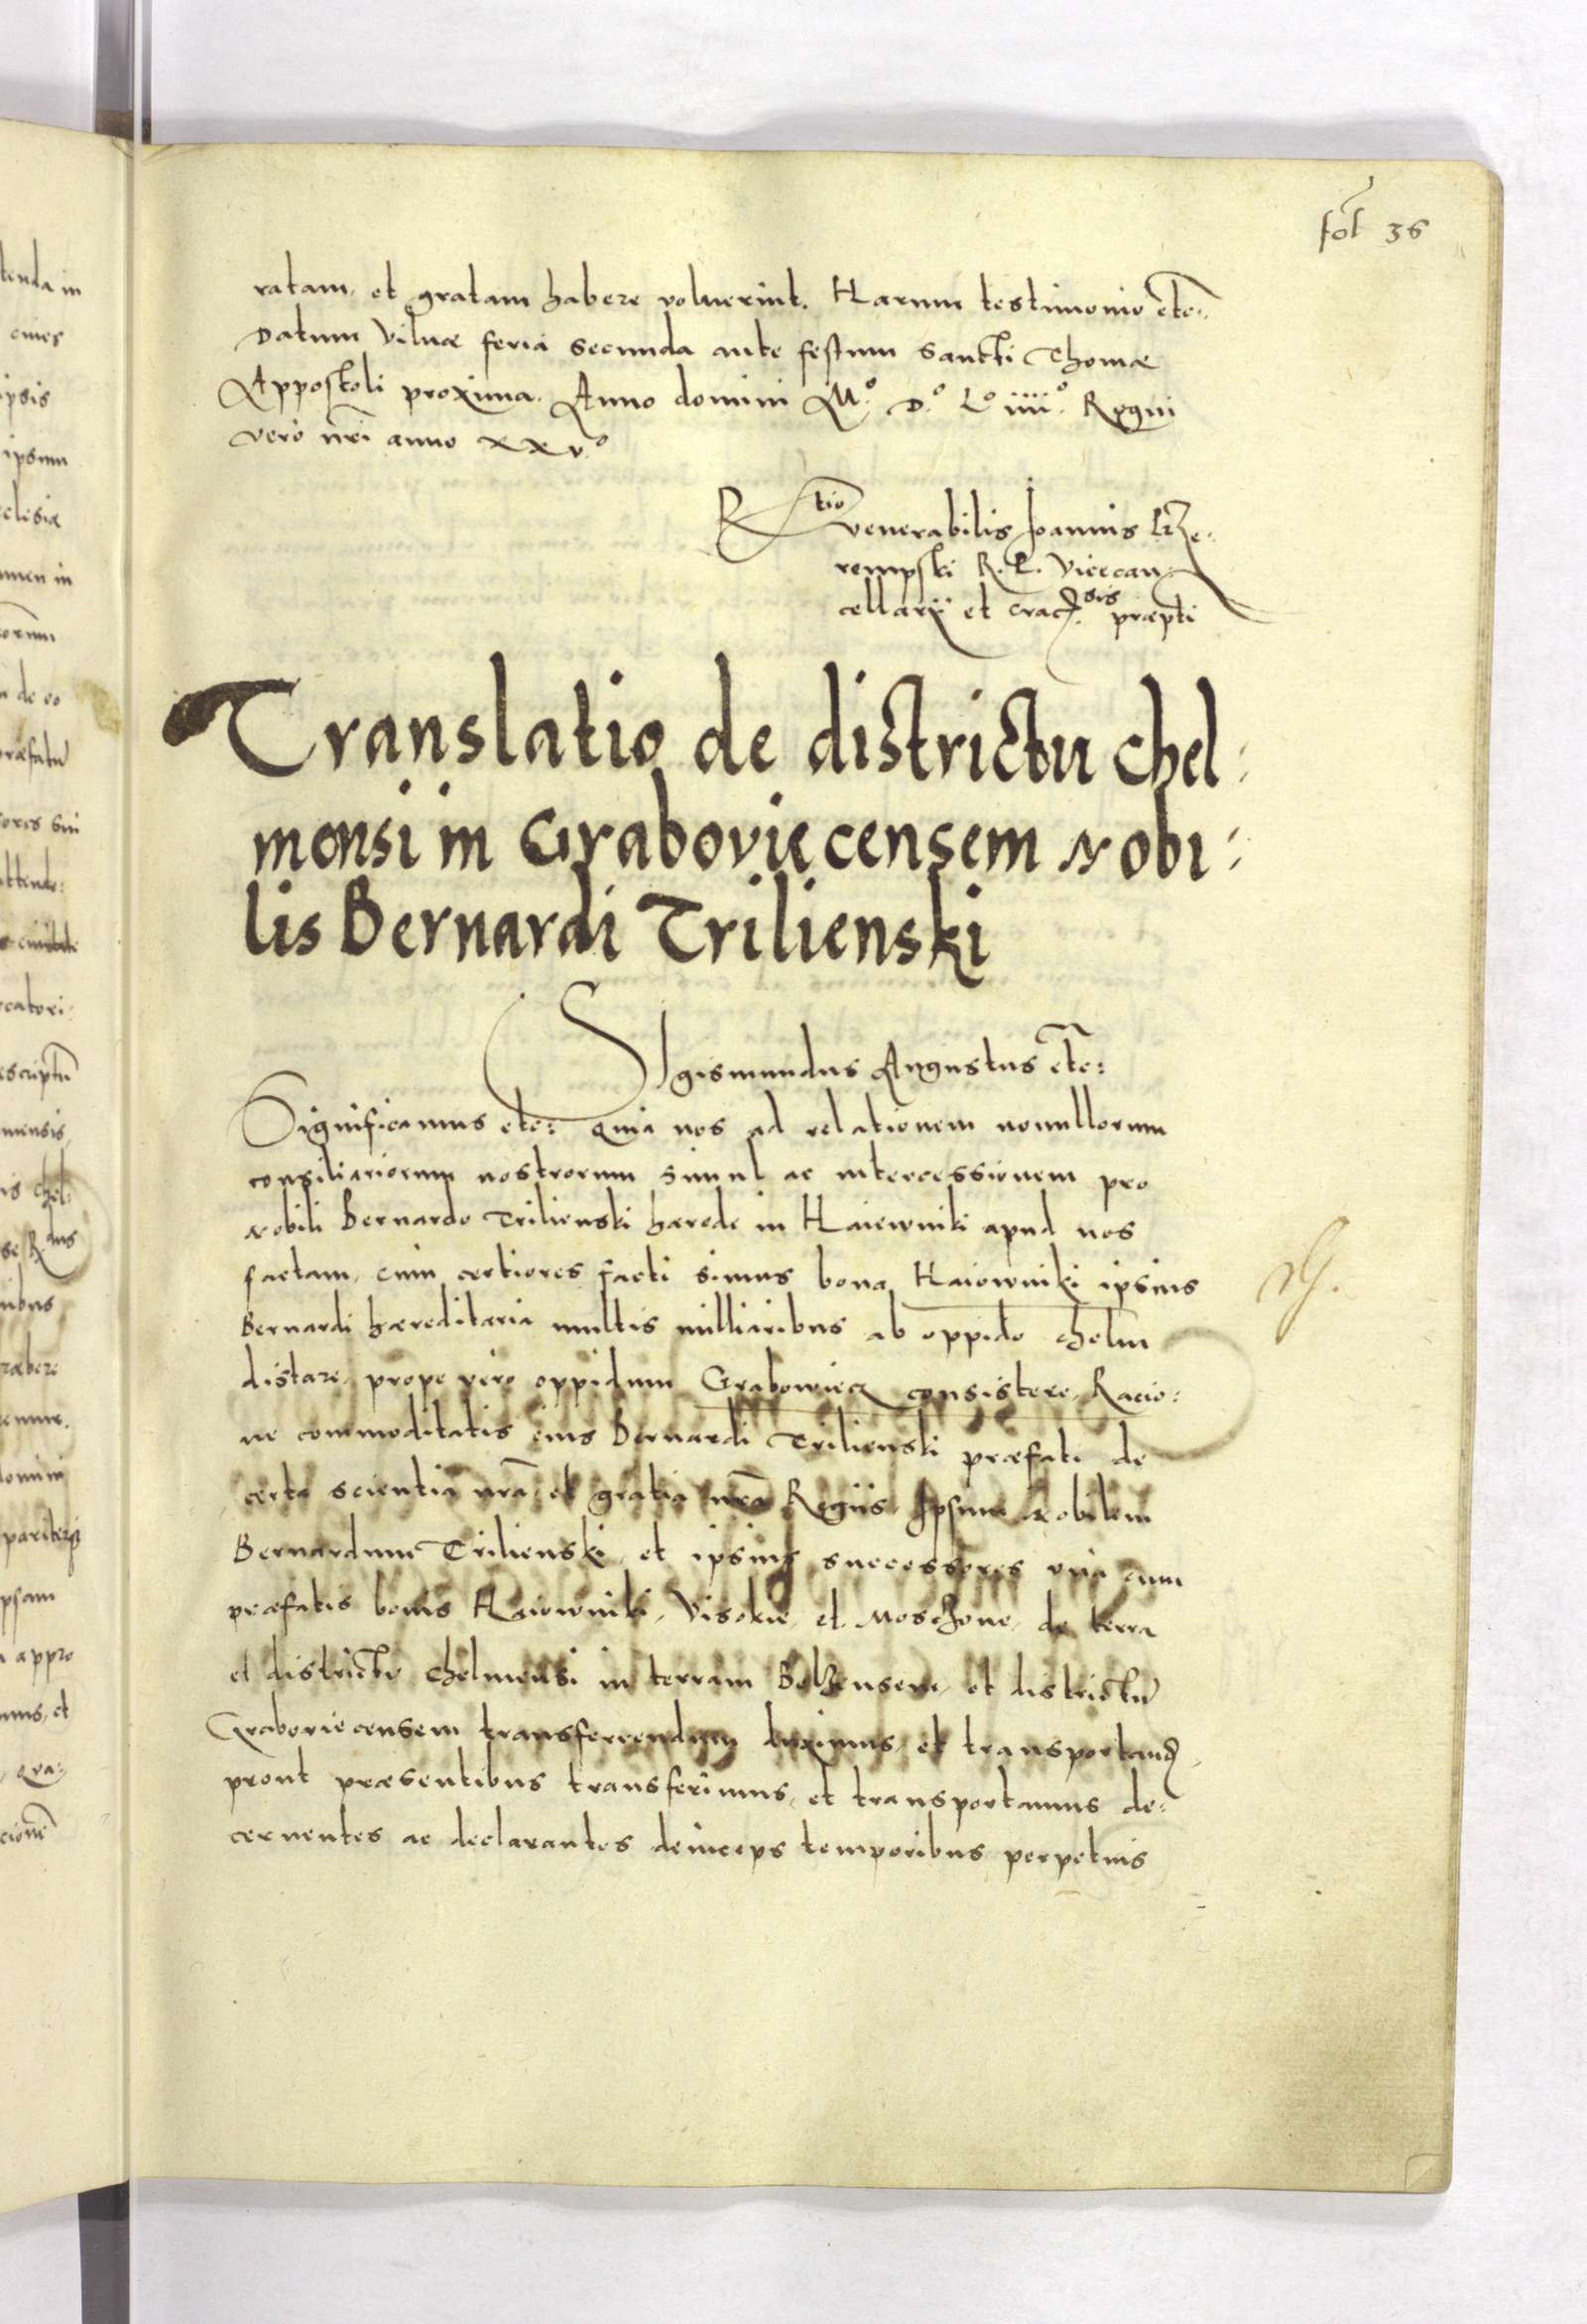 fol 36
ratam, et gratam habere voluerint. Harum testimonio etc:
Datum Vilnæ feria secunda ante festum Sancti Thomæ
Appostoli proxima. Anno domini M.º D.º Lº iiiiº. Regni
vero nri anno xxvº
Rtio venerabilis Joannis Prze-
rempski R. P. Vicecan-
cellarii et Crac.sis præpti
Translatio de districtu Chel-
mensi in Graboviecensem Nobi-
lis Bernardi Trilienski
Sigismundus Augustus etc:
Significamus etc: Quia nos ad relationem nonnullorum
consiliariorum nostrorum simul ac intercessionem pro
Nobili Bernardo Trilienski hærede in Haiewniki apud nos
factam, cum certiores facti simus bona Haiowniki ipsius
Bernardi hæreditaria multis milliaribus ab oppido Chelm
distare, prope vero oppidum Grabowiecz consistere, Racio-
ne commoditatis eius Bernardi Trilienski præfati de
certa scientia nra, et gratia nra Regiis Ipsum Nobilem
Bernardum Trilienski, et ipsius successores una cum
præfatis bonis Haiowniki, Visokie, et Moschone, de terra
et districtu Chelmensi in terram Belzensem, et districtu
Graboviecensem transferrendum duximus, et transportand
prout præsentibus transferimus, et transportamus de-
cernentes ac declarantes deinceps temporibus perpetuis